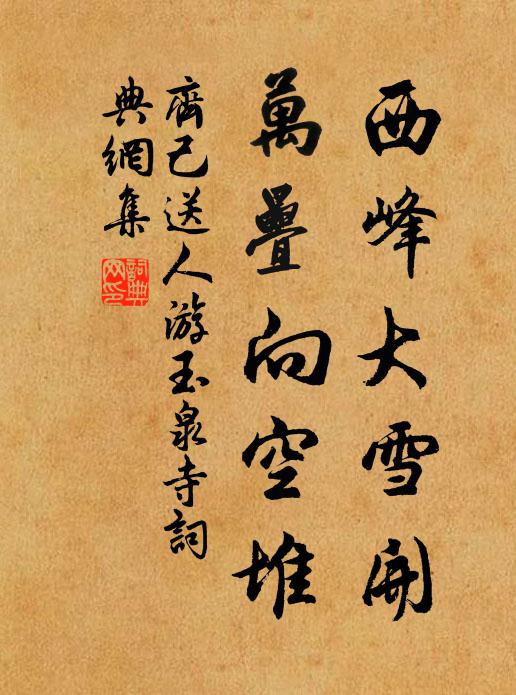 西峰大雪開
萬疊向空堆
齊己送人游玉泉寺詞
典網集
詞典網印